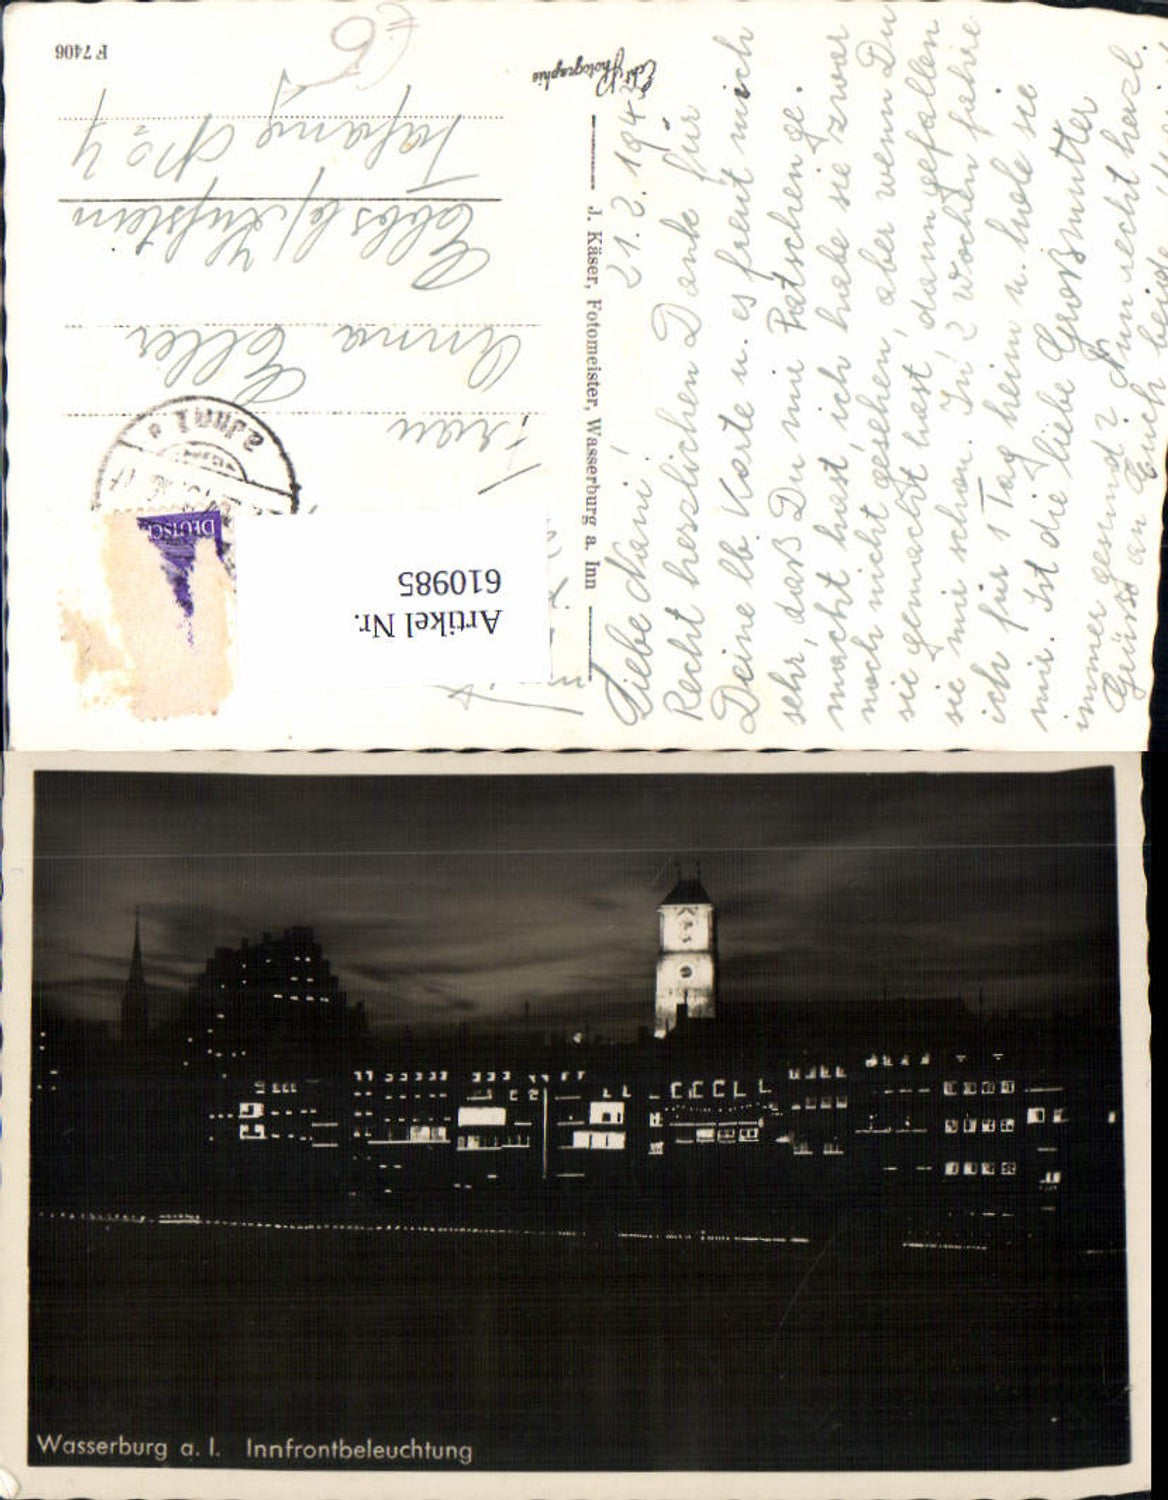 F 7406
Echt Photographie
J. Käser, Fotomeister, Wasserburg a. Inn
Frau
Anna Eller
Ebbs b/ Kufstein
Tafang No 4
DEUTSCH
Artikel Nr.
610985
21.2.194
Liebe Nani!
Recht herzlichen Dank für
Deine lb. Karte u. es freut mich
sehr, daß Du mir Patschen ge.
macht hast, ich habe sie zwar
noch nicht gesehen, aber wenn Du
sie gemacht hast, dann gefallen
sie mir schon. In 2 Wochen fahre
ich für 1 Tag heim u. hole sie
mir. Ist die liebe Großmutter
immer gesund? Nun recht herzl.
Grüße an Euch beide
Wasserburg a. I. Innfrontbeleuchtung